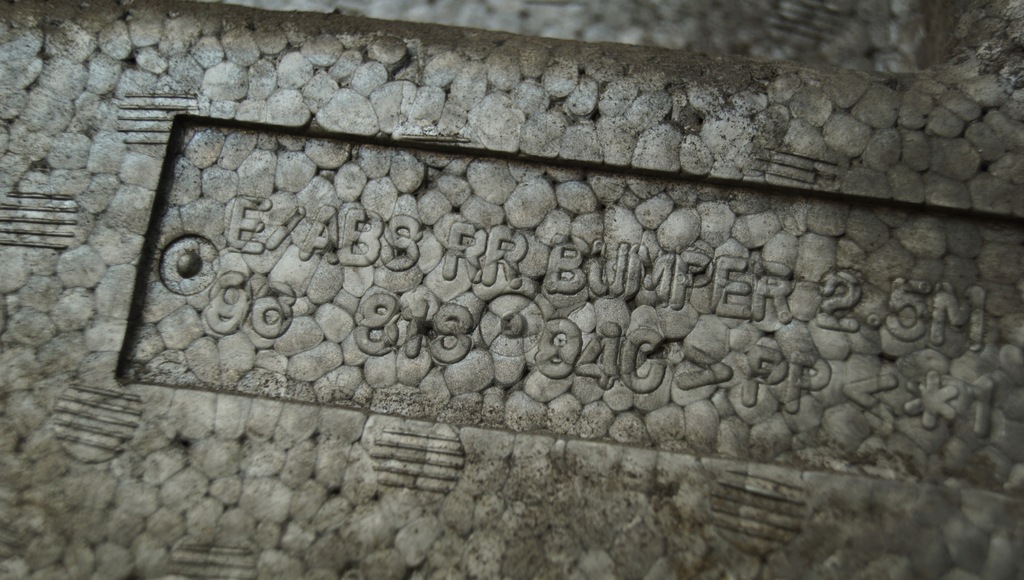 E/ABS RR BUMPER 2.5M
96 818 94C >PP< *1